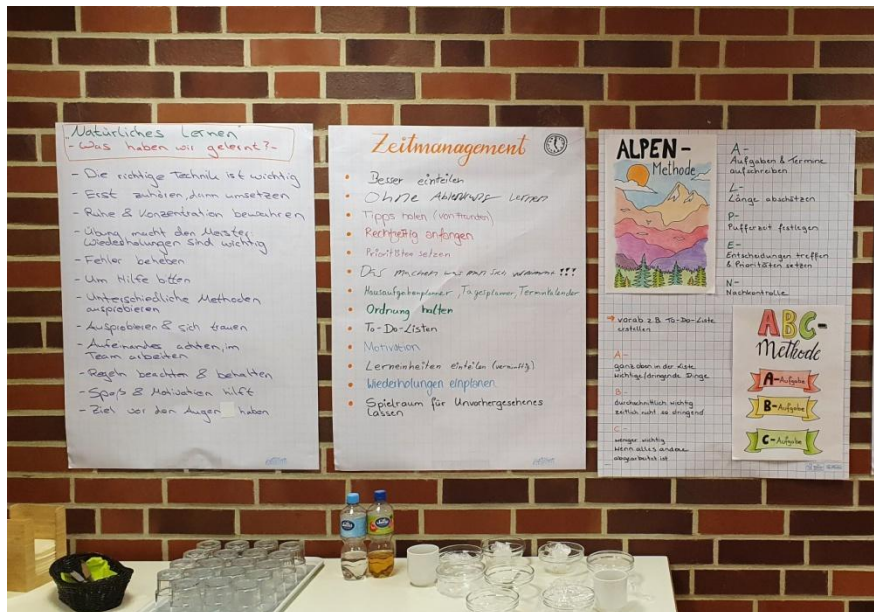 "Natürliches Lernen"
- Was haben wir gelernt? -
- Die richtige Technik ist wichtig
- Erst zuhören, dann umsetzen
- Ruhe & Konzentration bewahren
- Übung macht den Meister,
Wiederholungen sind wichtig
- Fehler beheben
- Um Hilfe bitten
- Unterschiedliche Methoden
ausprobieren
- Ausprobieren & sich trauen
- Aufeinander achten, im
Team arbeiten
- Regeln beachten & behalten
- Spaß & Motivation hilft
- Ziel vor den Augen haben
Zeitmanagement
• Besser einteilen
• Ohne Ablenkung Lernen
• Tipps holen (von Freunden)
• Rechtzeitig anfangen
• Prioritäten setzen
• Das machen was man sich vornimmt!!!
• Hausaufgabenplaner, Tagesplaner, Terminkalender
• Ordnung halten
• To-Do-Listen
• Motivation
• Lerneinheiten einteilen (vernünftig)
• Wiederholungen einplanen
• Spielraum für Unvorhergesehenes
lassen
ALPEN-
Methode
A-
Aufgaben & Termine
aufschreiben
L-
Länge abschätzen
P-
Pufferzeit festlegen
E-
Entscheidungen treffen
& Prioritäten setzen
N-
Nachkontrolle
→ vorab z.B. To-Do-Liste
erstellen
A-
ganz oben in der Liste
wichtige/dringende Dinge
B-
durchschnittlich wichtig
zeitlich nicht so dringend
C-
weniger wichtig
wenn alles andere
abgearbeitet ist
ABC-
Methode
A-Aufgabe
B-Aufgabe
C-Aufgabe